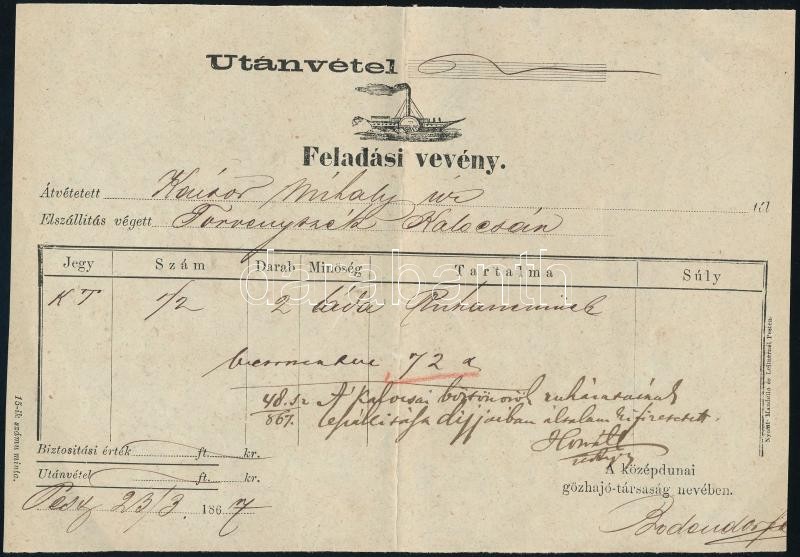 Utánvétel
Feladási vevény.
Átvétetett Mihaly úr tól
Elszállitás végett Törvényszék Kalocsán
Jegy Szám Darab Minőség Tartalma Súly
KT 1/2 2 láda Ruhanemüek
72 x
48. sz. A kalocsai börtönörök ruházatainak
867. díjjaiban általam kifizetetett.
Horváth
Biztositási érték ft. kr.
Utánvétel ft. kr.
Pest 23/3 1867
A középdunai
gőzhajó-társaság nevében.
15-ik számu minta.
Nyomt. Pesten.
darabanth